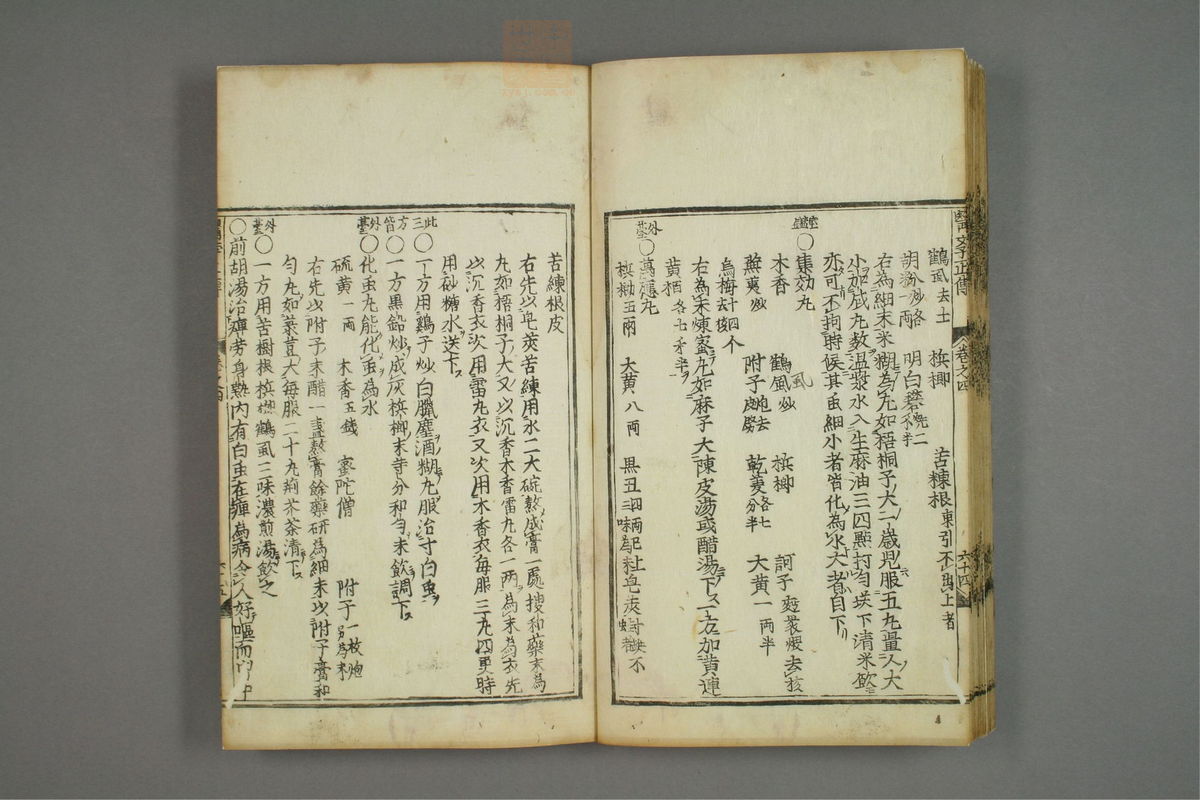 醫學正傳 卷之四 六十四
鶴虱去土 梹榔 苦楝根東引不出土者
胡粉炒各一兩 明白礬燒二禾半
右為細末米糊為丸如梧桐子大一二歲児服五丸量人大
小加成丸数温漿水入生麻油三四點打匀送下清米飲
亦可不拘時候其虫細小者皆化為水大者自下
○集効丸
木香 鶴虱炒 梹榔 訶子麪裹煨去核
蕪荑炒 附子炮去皮臍 乾姜各七分半 大黄一兩半
烏梅十四个去核
右為末煉蜜丸如麻子大陳皮湯或醋湯下一方加黄連
黄栢各七禾半
外臺○萬應丸
梹榔五兩 大黄八兩 黒丑四兩
苦練根皮
右先以皂莢苦練用水二大碗熬成膏一處搜和藥末為
丸如梧桐子大又以沉香木香雷丸各一两為末為衣先
以沉香衣次用雷丸衣又次用木香衣每服三丸四更時
用砂糖水送下
此三方皆○一方用鷄子炒白臘塵酒糊丸服治寸白虫
○一方黒鉛炒成灰梹榔末等分和匀米飲調下
外臺○化虫丸能化虫為水
硫黄一兩 木香五錢 蜜陀僧 附子一枚炮別為末
右先以附子末醋一盞熬膏餘藥研為細末以附子膏和
匀丸如菉荳大每服二十丸荊芥茶清下
外臺○一方用苦樹根梹榔鶴虱三味濃煎湯飲之
○前胡湯治癉劳身熱内有白虫在癉為病令人好嘔而